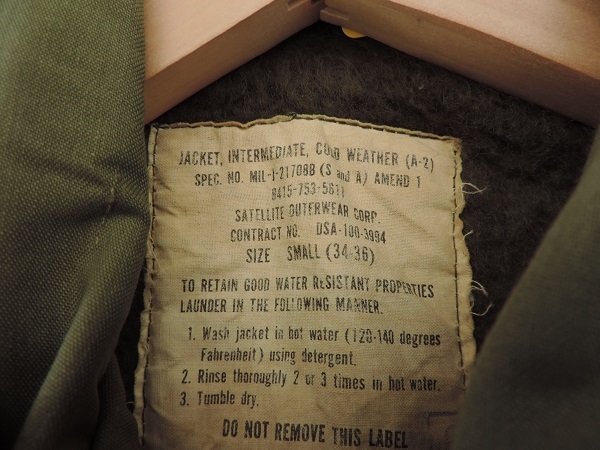 JACKET, INTERMEDIATE, COLD WEATHER (A-2)
SPEC. NO. MIL-J-21708B (S and A) AMEND 1
8415-753-5611
SATELLITE OUTERWEAR CORP.
CONTRACT NO. DSA-100-3994
SIZE SMALL (34-36)
TO RETAIN GOOD WATER RESISTANT PROPERTIES
LAUNDER IN THE FOLLOWING MANNER.
1. Wash jacket in hot water (120-140 degrees
Fahrenheit) using detergent.
2. Rinse thoroughly 2 or 3 times in hot water.
3. Tumble dry.
DO NOT REMOVE THIS LABEL